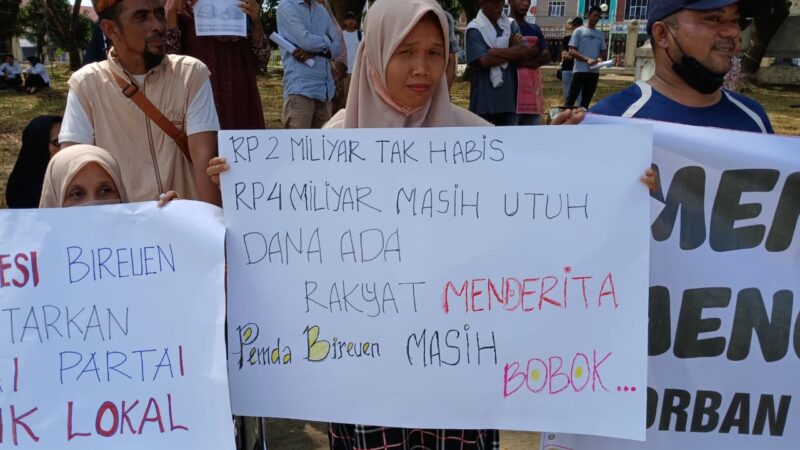 RP 2 MILIYAR TAK HABIS
RP4 MILIYAR MASIH UTUH
DANA ADA
RAKYAT MENDERITA
Pemda Bireuen MASIH
BOBOK...
ESI BIREUEN
TARKAN
I PARTAI
IK LOKAL
MEN
MENG
ORBAN